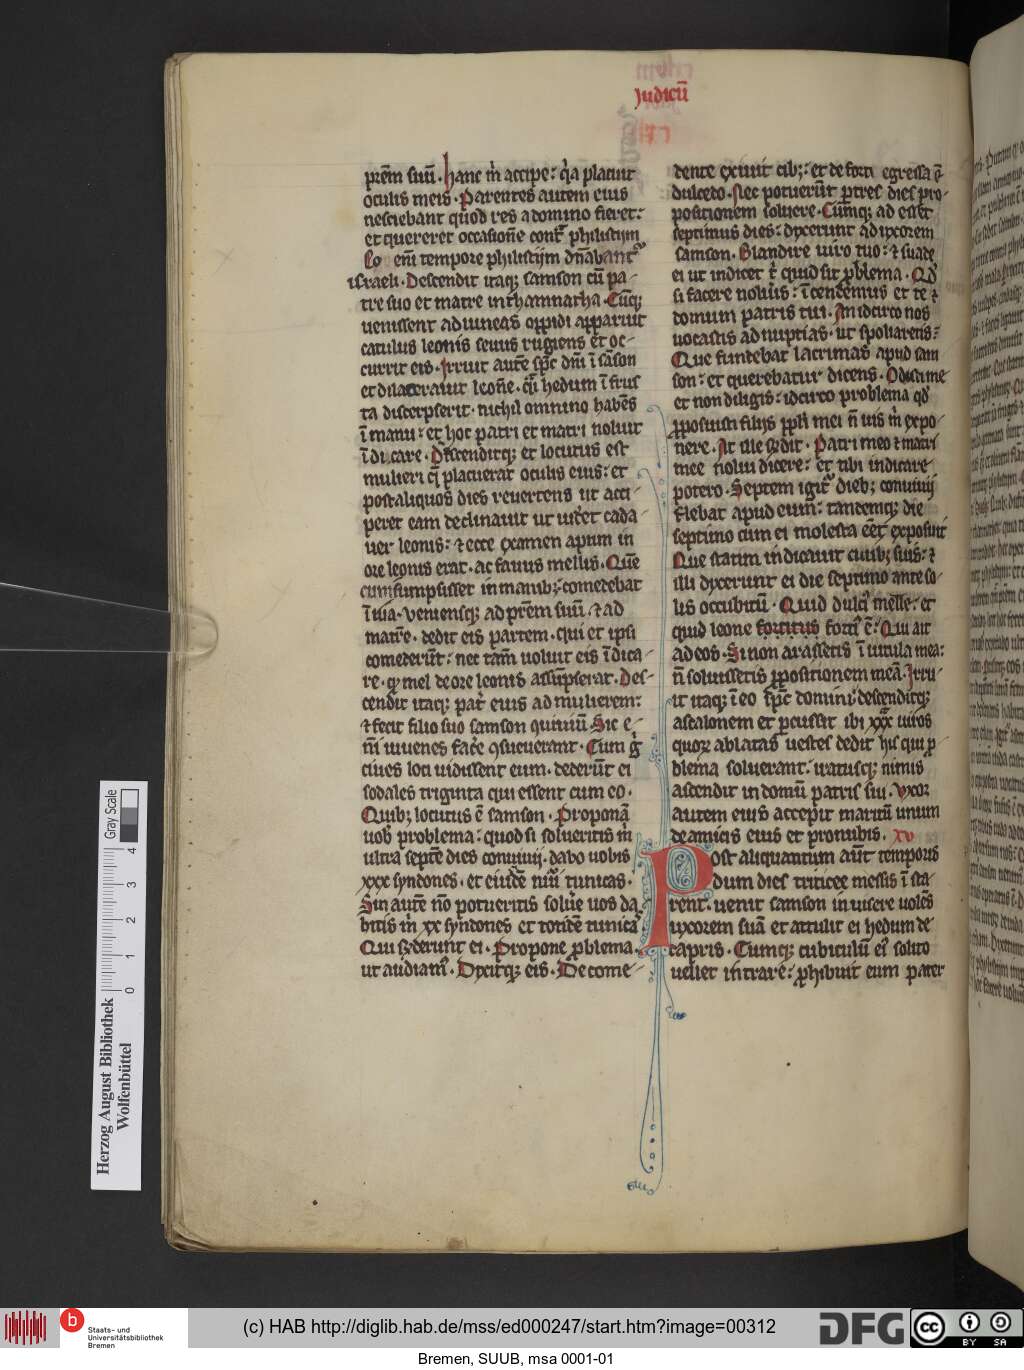 Judicū
prēm suū. Hanc m̄ accipe: q̄a placuit
oculis meis. Parentes autem eius
nesciebant quod res a domino fieret:
et quereret occasionē cont̄ philistijm
Eo enī tempore philistijm dn̄abant᷒
israeli. Descendit itaq; samson cū pa-
tre suo et matre in thamnatha. Cūq;
uenissent ad uineas oppidi apparuit
catulus leonis seuus rugiens et oc-
currit eis. Irruit autē sp̄c dn̄i ī sāson
et dilacerauit leonē. q̄i hedum ī frus
ta discerpserit. nichil omnino habēs
ī manu: et hoc patri et matri noluit
īdicare. Descenditq; et locutus est
mulieri q̄ placuerat oculis eius: et
post aliquos dies reuertens ut acci-
peret eam declinauit ut uidēt cada-
uer leonis: et ecce examen apum in
ore leonis erat. ac fauus mellis. Quē
cum sumpsisset in manib; comedebat
ī uia. veniensq; ad prēm suū. et ad
matrē. dedit eis partem. qui et ipsi
comederūt: nec tam̄ uoluit eis īdica-
re. q̄ mel de ore leonis assūpserat. Des-
cendit itaq; pat̄ eius ad mulierem:
et fecit filio suo samson quiuiū. Sic e-
nī iuuenes facē ꝯsueuerant. Cum ḡ
ciues loci uidissent eum. dederūt ei
sodales triginta qui essent cum eo.
Quib; locutus ē samson. Proponā
uob̄ problema: quod si solueritis m̄
ultra septē dies conuiuij. dabo uobis
xxx syndones. et eiusdē nūi tunicas.
Sin autē nō potueritis soluē uos da
bitis m̄ xx syndones et totidē tunicas
Qui rñderunt ei. Propone ꝓblema.
ut audiam᷒. Dixitq; eis. De come-
dente exiuit cib;: et de forti egressa ē
dulcedo. Nec potuerūt p̄ tres dies pro-
positionem soluere. Cumq; ad esset
septimus dies: dixerunt ad uxorem
samson. Blandire uiro tuo: et suade
ei ut indicet t̄ quid sit ꝓblema. Qd̄
si facere nolueris: īcendemus et te et
domum patris tui. An idcirco nos
uocastis ad nuptias. ut spoliaretis:
Que fundebat lacrimas apud sam
son: et querebatur dicens. Odisti me
et non diligis: idcirco problema qd̄
ꝓposuisti filijs ppl̄i mei n̄ uis m̄ expo-
nere. At ille rñdit. Patri meo et matri
mee nolui dicere: et tibi indicare
potero. Septem igit̄ dieb; conuiuij
flebat apud eum: tandemq; die
septimo cum ei molesta eēt exposuit
Que statim indicauit ciuib; suis: et
illi dixerunt ei die septimo ante so-
lis occubitū. Quid dulci᷒ melle: et
quid leone fortius forti᷒ ē: Qui ait
ad eos. Si non arassetis ī uitula mea:
n̄ soluissetis ꝓpositionem meā. Irru-
it itaq; ī eo sp̄c domini descenditq;
ascalonem et percussit ibi xxx uiros
quoꝝ ablatas uestes dedit his qui ꝓ
blema soluerant. iratusq; nimis
ascendit in domū patris sui. Vxor
autem eius accepit maritū unum
de amicis eius et pronubis. xv
Post aliquantum aūt temporis
dum dies triticee messis ī sta-
rent. uenit samson inuisere uolēs
uxorem suā et attulit ei hedum de
capris. Cumq; cubiculū ei᷒ solito
uellet intrare: ꝓhibuit eum pater
Gray Scale
0 1 2 3 4
Herzog August Bibliothek
Wolfenbüttel
b Staats- und
Universitätsbibliothek
Bremen
(c) HAB http://diglib.hab.de/mss/ed000247/start.htm?image=00312
DFG
cc BY SA
Bremen, SUUB, msa 0001-01